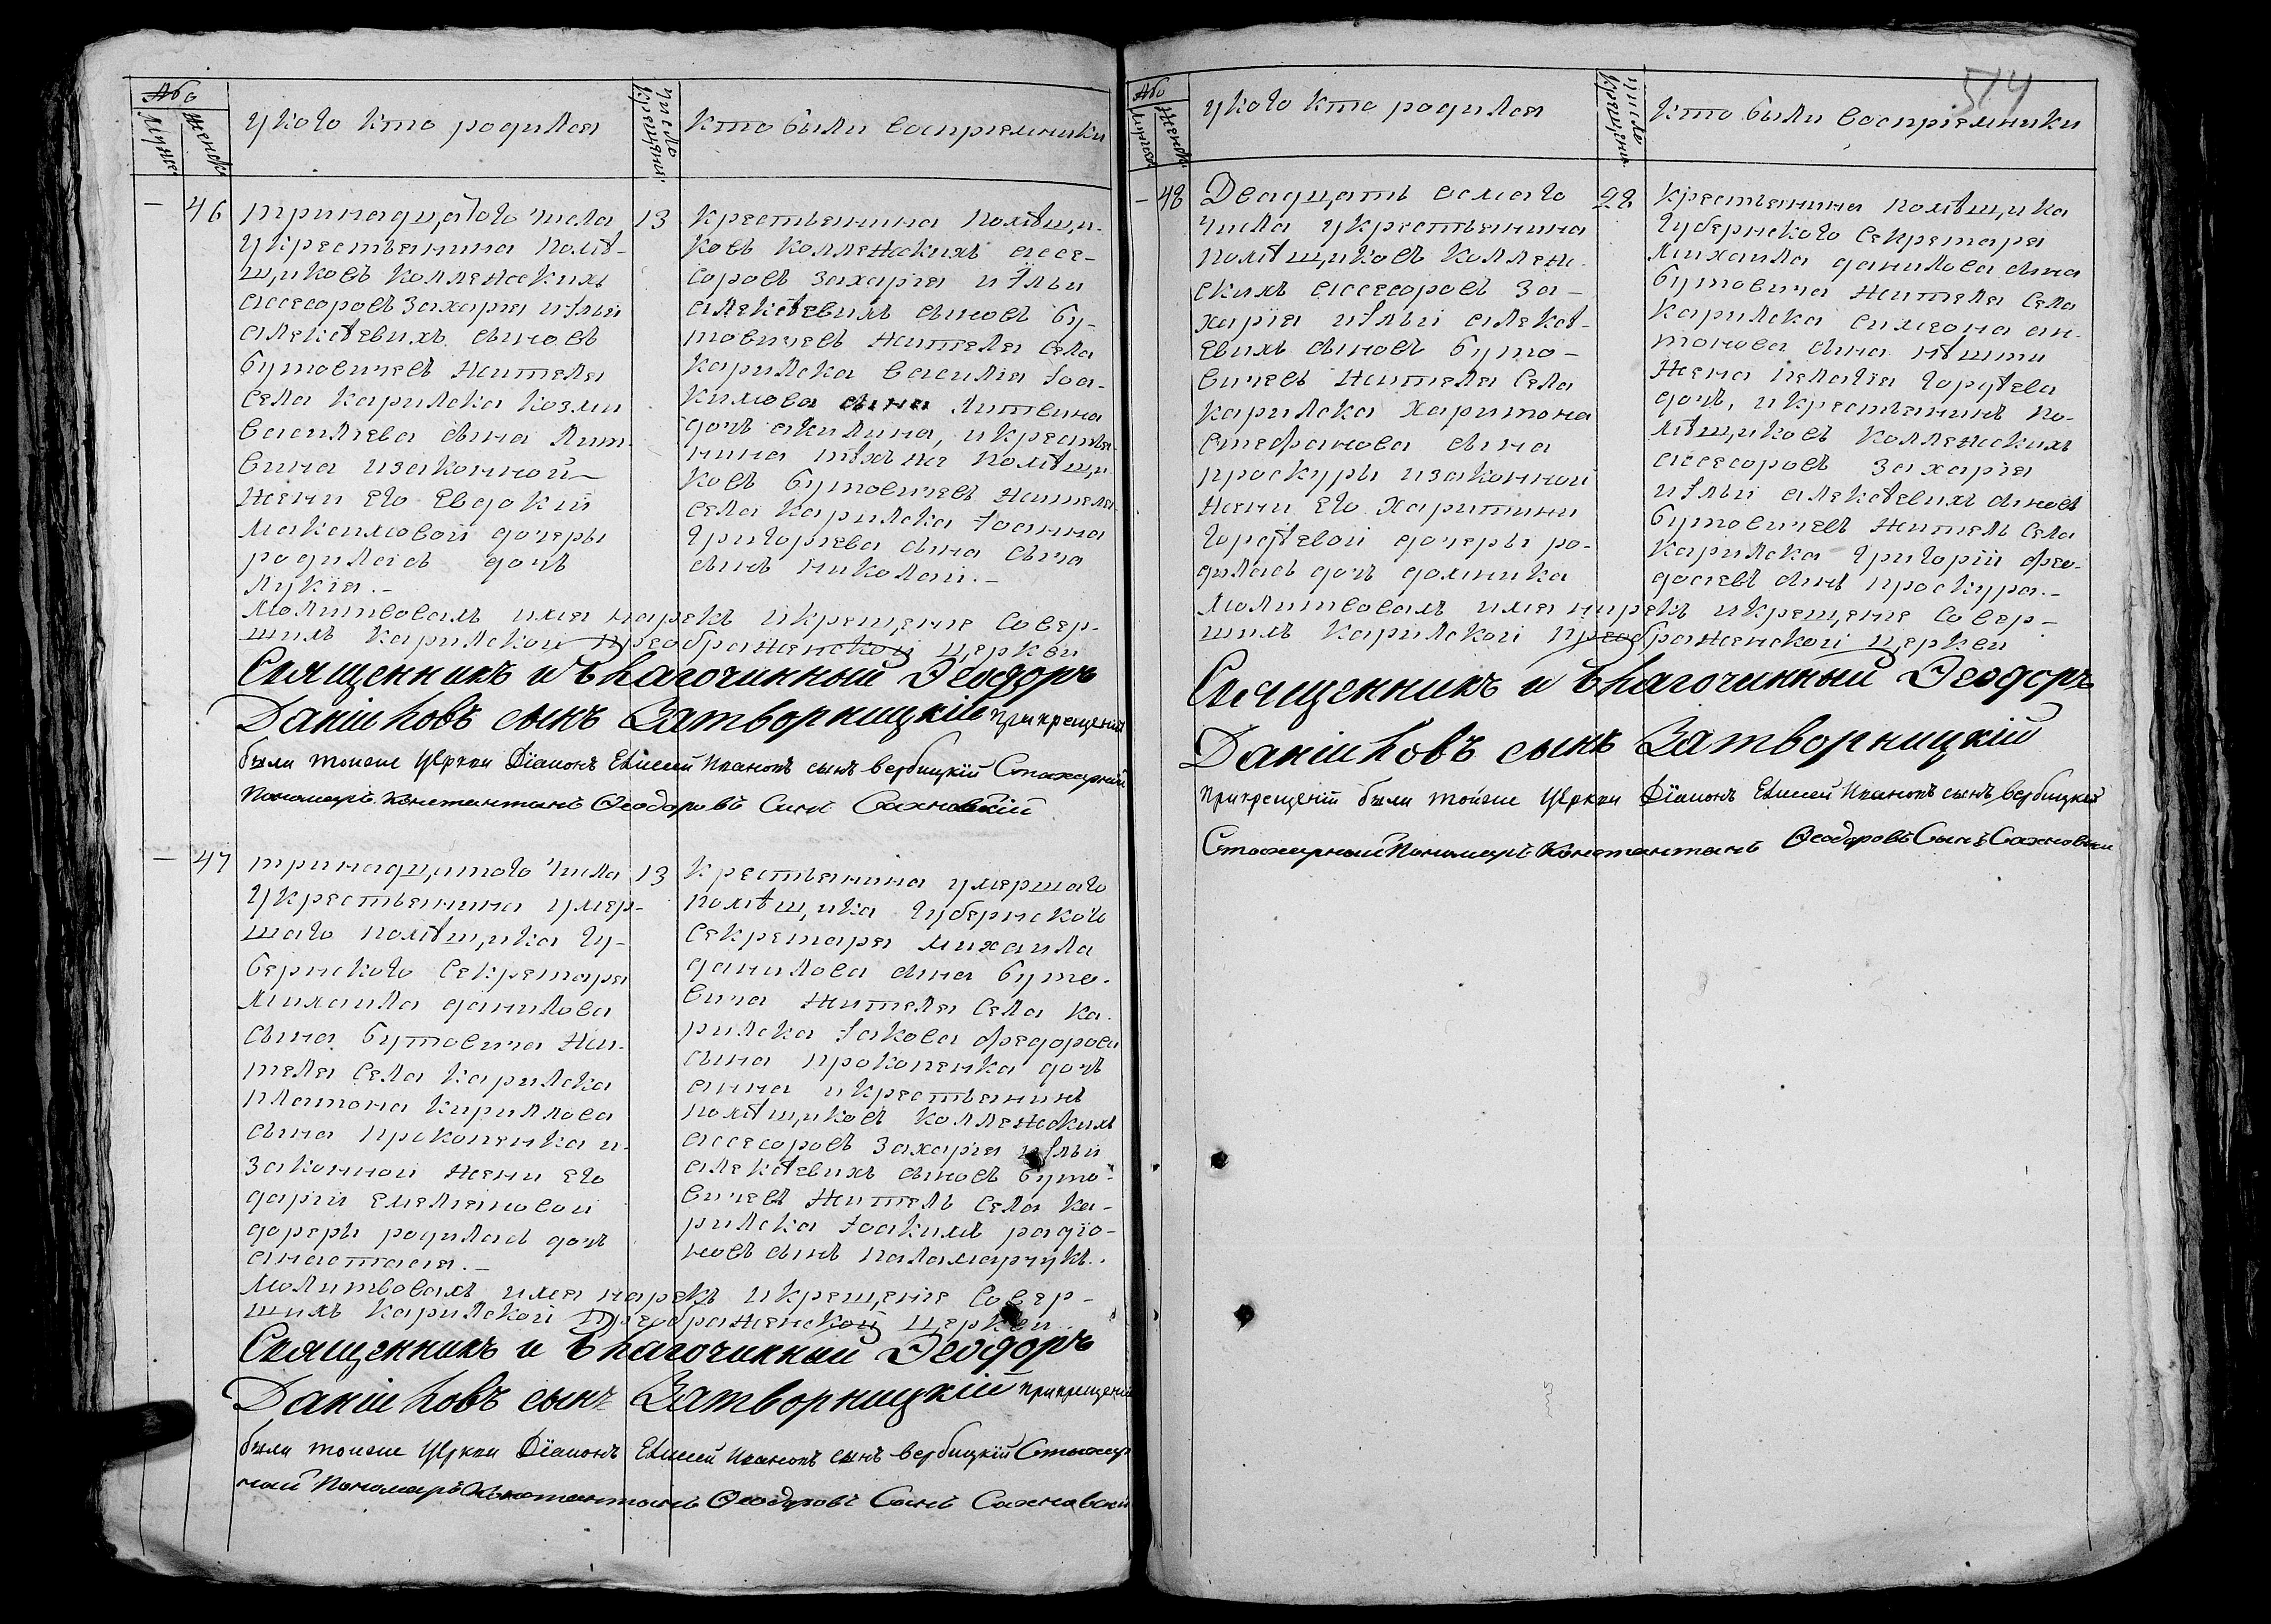 Або
Мужс
Женск
У кого кто родился
Число крещения
Кто были восприемники
— 46
тринадцатого числа
у крестьянина помѣ-
щиковъ коллежскихъ
ассесоровъ Захария и Ильи
Алексѣевихъ синовъ
Бутовичевъ жителя
села Карилска Козми
Василиева сина Лит-
вина и законной
жени его Евдокии
Максимовой дочери
родилась дочь
Лукия.-
13
крестьянина помѣщи-
ковъ коллежскихъ ассе-
соровъ Захария и Ильи
Алексѣевихъ синовъ Бу-
товичевъ жителя села
Карилска Василия Иоа-
кимова сина Литвина
дочь Акилина, и крестья-
нина тѣхъ же помѣщи-
ковъ Бутовичевъ жителя
села Карилска Иоанна
Григориева сина
синъ Николай.-
Молитвовалъ имя нарекъ и крещение совер-
шилъ Карилской Преображенской церкви
Священникъ и Благочинный Ѳеодоръ
Данiиловъ сынъ Затворницкiй При крещенiи
были тоиже Церкви Дïаконъ Елисей Ивановъ сынъ Вербицкiй Стихарний
Пономарь Константинъ Ѳеодоровъ Синъ Сахновскiй
— 47
тринадцатого числа
у крестьянина умер-
шаго помѣщика гу-
бернского секретаря
Михаила Данилова
сина Бутовича жи-
теля села Карилска
Платона Кириллова
сина Прокопенка и
законной жени его
Дарии Емелиановой
дорери родилась дочь
Анастасия.-
13
крестьянина умершаго
помѣщика губернского
секретаря Михаила
Данилова сина Буто-
вича жителя села Ка-
рилска Иакова Федорова
сина Прокопенка дочь
Анна и крестьянинъ
помѣщиковъ коллежскихъ
ассесоровъ Захария и Ильи
Алексѣевихъ синовъ Буто-
вичевъ житель села Ка-
рилска Иоакимъ Радïо-
новъ синъ Паламарчукъ.
Молитвовалъ имя нарекъ и крещение совер-
шилъ Карилской Преображенской церкви
Священникъ и Благочинный Ѳеодоръ
Данiиловъ сынъ Затворницкiй При крещенiи
были тоиже Церкви Дïаконъ Елисей Ивановъ сынъ Вербицкiй Стихар
ний Пономарь Константинъ Ѳеодоровъ Синъ Сахновскiй
514
Або
Мужск
Женск
У кого кто родился
Число крещения
Кто были восприемники
— 48
Двадцать осмаго
числа у крестьянина
помѣщиковъ коллеж-
скихъ ассесоровъ За-
харïя и Ильи Алексѣ-
евихъ синовъ Буто-
вичевъ жителя села
Карилска Харитона
Стефанова сина
Проскуры и законной
жени его Харитини
Гордѣевой дочери ро-
дилась дочь Домника
28
крестьянина помѣщика
губернского секретаря
Михаила Данилова сина
Бутовича жителя села
Карилска Симеона Ан-
тонова сина
жена Пелагïя Гордѣева
дочь, и крестьянинъ по-
мѣщиковъ коллежскихъ
ассесоровъ Захария
и Ильи Алексѣевихъ синовъ
Бутовичевъ житель села
Карилска Григорïй Фео-
досиевъ синъ Проскура.-
Молитвовалъ имя нарекъ и крещение совер-
шилъ Карилской Преображенской церкви
Священникъ и Благочинный Ѳеодоръ
Данiиловъ сынъ Затворницкiй
При крещенiи были тойже Церкви Дïаконъ Елисей Ивановъ сынъ Вербицкiй
Стихарний Пономарь Константинъ Ѳеодоровъ Синъ Сахновскiй